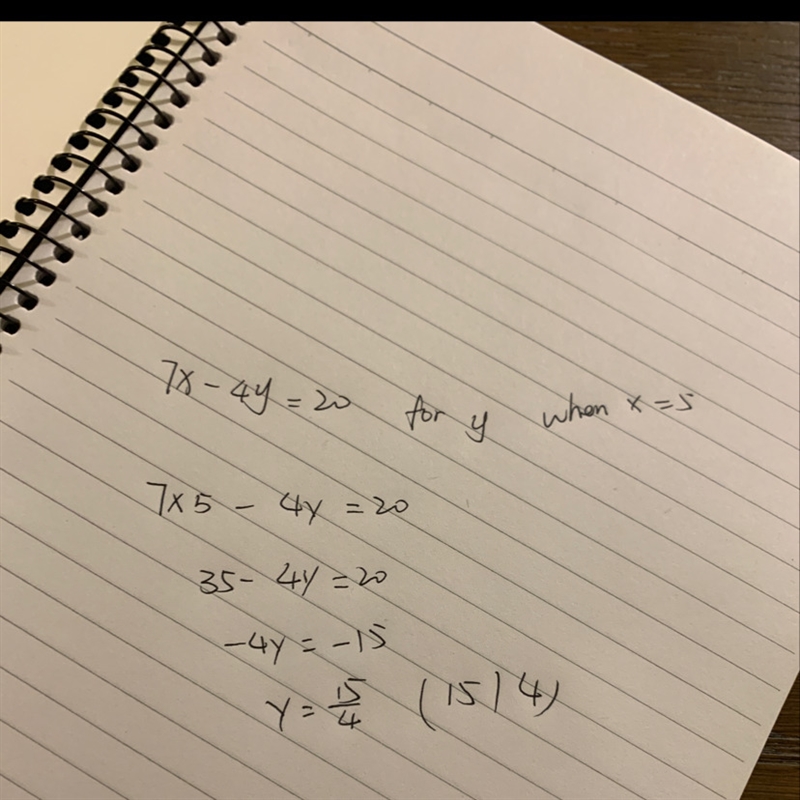 7x - 4y = 20 for y when x = 5
7 x 5 - 4y = 20
35 - 4y = 20
-4y = -15
y = 15/4 (15/4)